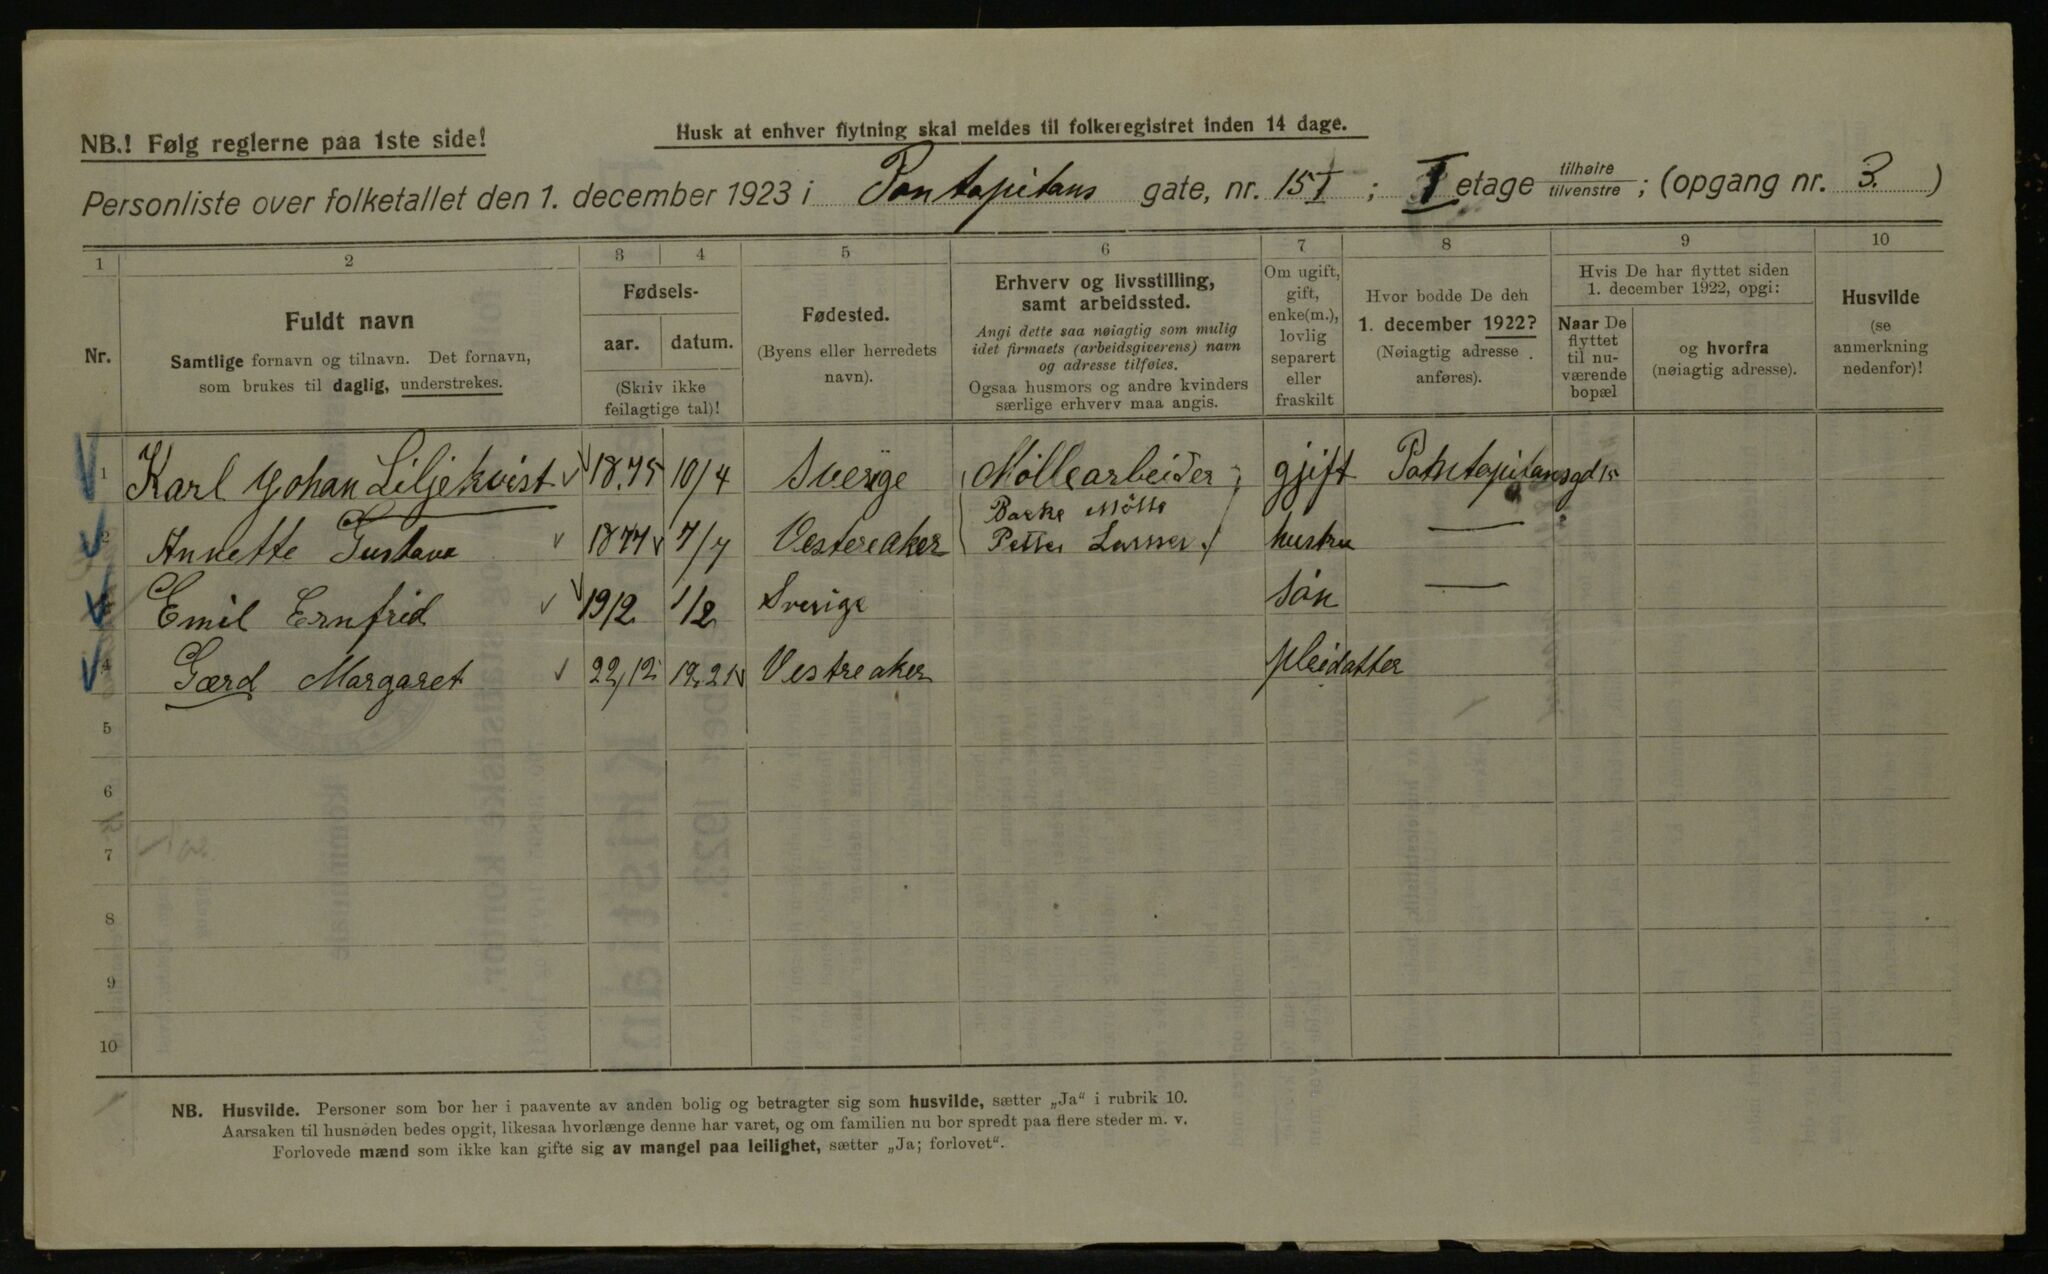 NB.! Følg reglerne paa 1ste side!
Husk at enhver flytning skal meldes til folkeregistret inden 14 dage.
Personliste over folketallet den 1. december 1923 i Pontopitans gate, nr. 15 I ; I etage tilhøire tilvenstre ; (opgang nr. 3. )
1 2 3 4 5 6 7 8 9 10
Nr.
Fuldt navn
Samtlige fornavn og tilnavn. Det fornavn,
som brukes til daglig, understrekes.
Fødsels-
aar. datum.
(Skriv ikke
feilagtige tal)!
Fødested.
(Byens eller herredets
navn).
Erhverv og livsstilling,
samt arbeidssted.
Angi dette saa nøiagtig som mulig
idet firmaets (arbeidsgiverens) navn
og adresse tilføies.
Ogsaa husmors og andre kvinders
særlige erhverv maa angis.
Om ugift,
gift,
enke(m.),
lovlig
separert
eller
fraskilt
Hvor bodde De den
1. december 1922?
(Nøiagtig adresse
anføres).
Hvis De har flyttet siden
1. december 1922, opgi:
Naar De
flyttet
til nu-
værende
bopæl
og hvorfra
(nøiagtig adresse).
Husvilde
(se
anmerkning
nedenfor)!
1 Karl Johan Liljekvist 1875 10/4 Sverige Möllearbeider gjift
Bakke Mölle
2 Annette Gustava 1877 7/7 Vestreaker Petter Larssen hustru —
Emil Ernfrid 1912 1/2 Sverige sön —
4 Gærd Margaret 22,12 19.21 Vestreaker pleidatter
5
6
7
8
9
10
NB. Husvilde. Personer som bor her i paavente av anden bolig og betragter sig som husvilde, sætter „Ja“ i rubrik 10.
Aarsaken til husnøden bedes opgit, likesaa hvorlænge denne har varet, og om familien nu bor spredt paa flere steder m. v.
Forlovede mænd som ikke kan gifte sig av mangel paa leilighet, sætter „Ja; forlovet“.